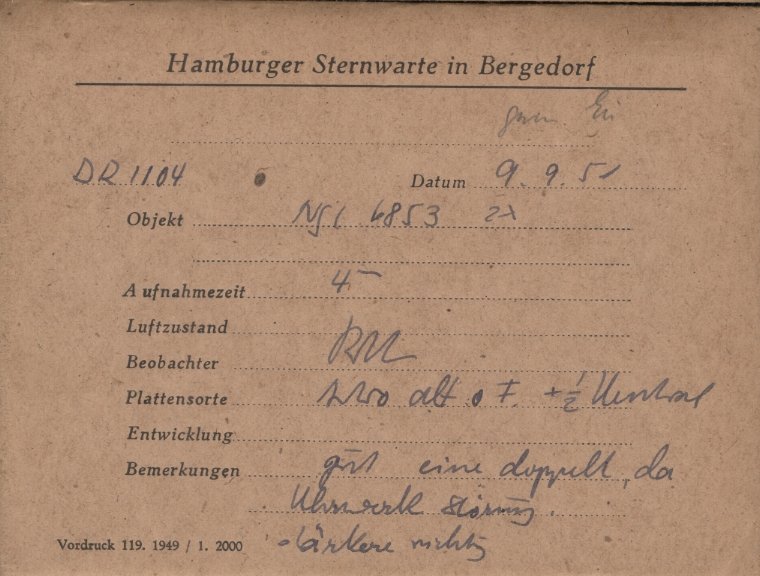 Hamburger Sternwarte in Bergedorf
DR 1104
Datum 9. 9. 51
Objekt NGC 6853 2x
Aufnahmezeit 4
Luftzustand
Beobachter
Plattensorte Astro alt o F. + 1/2 Neutral
Entwicklung
Bemerkungen gut eine doppelt, da
Uhrwerk störung.
stärkere richtig
Vordruck 119. 1949 / 1. 2000